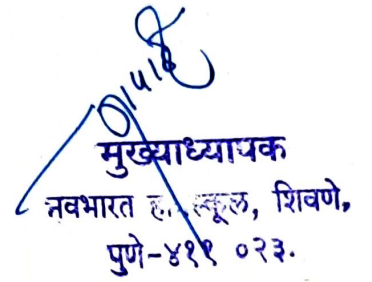 मुख्याध्यापक
नवभारत हा. स्कूल, शिवणे,
पुणे-४११ ०२३.